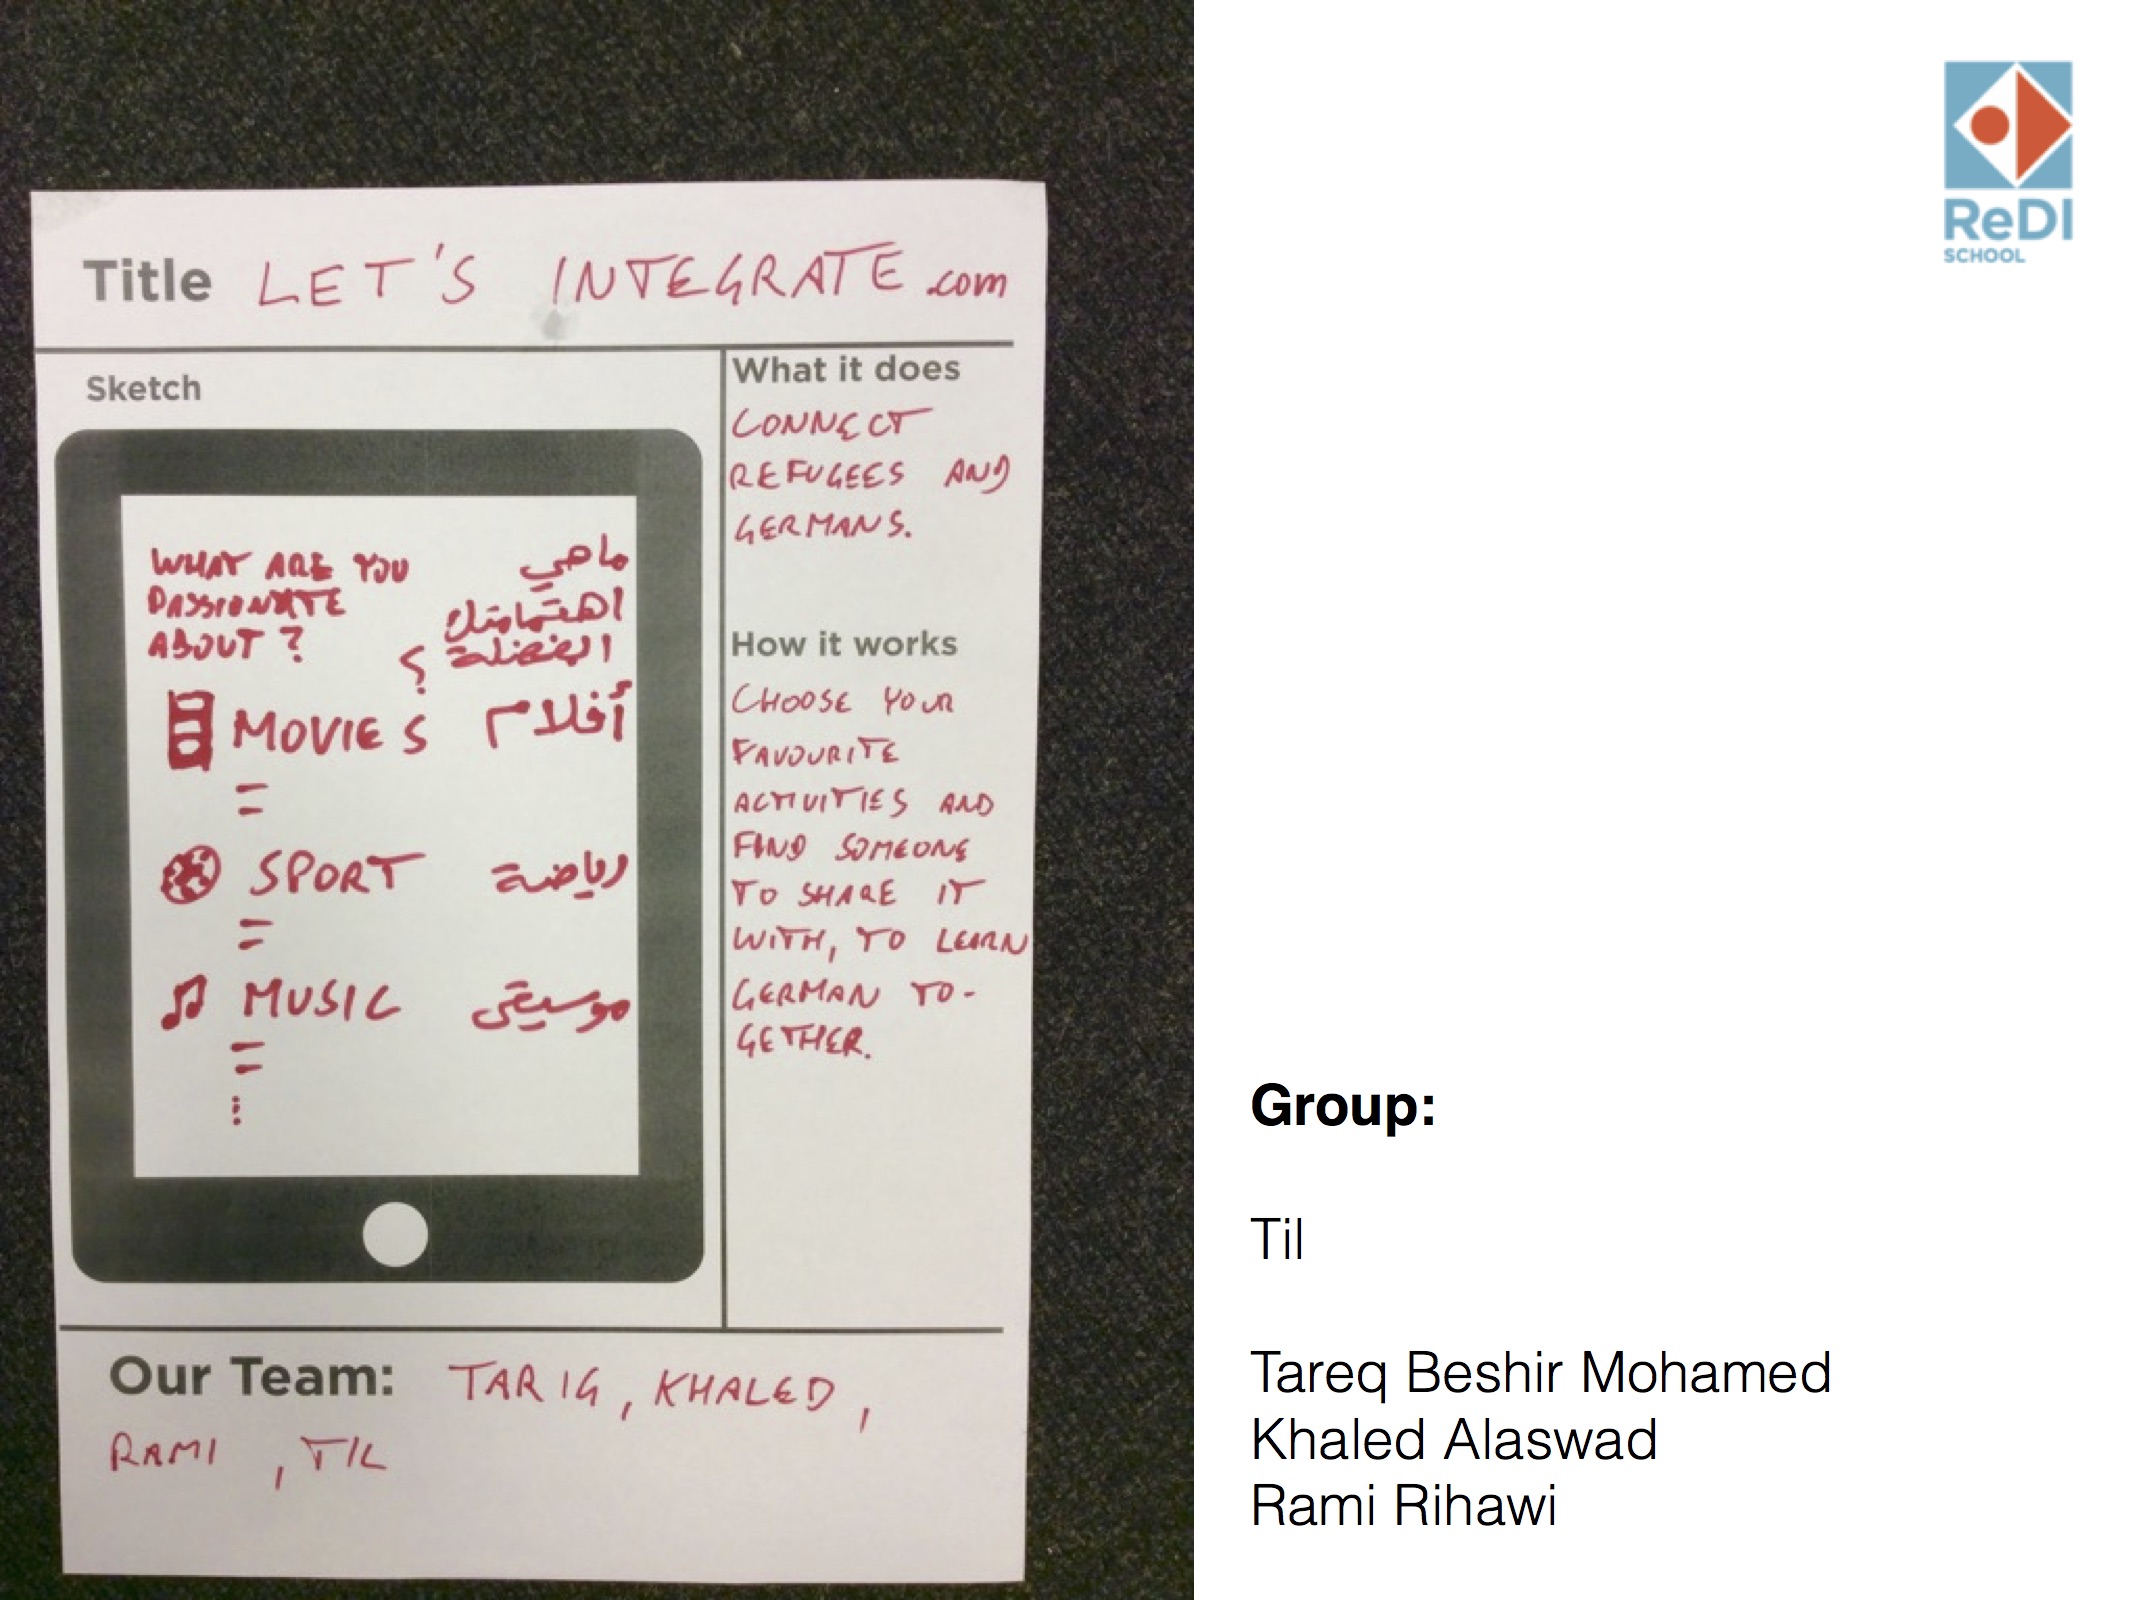 Title LET'S INTEGRATE.com
Sketch
WHAT ARE YOU
PASSIONATE
ABOUT?
ماهي
اهتمامتك
المفضلة
؟
MOVIES أفلام
SPORT رياضة
MUSIC موسيقى
...
What it does
CONNECT
REFUGEES AND
GERMANS.
How it works
CHOOSE YOUR
FAVOURITE
ACTIVITIES AND
FIND SOMEONE
TO SHARE IT
WITH, TO LEARN
GERMAN TO-
GETHER.
Our Team: TARIG, KHALED,
RAMI, TIL
ReDI
SCHOOL
Group:
Til
Tareq Beshir Mohamed
Khaled Alaswad
Rami Rihawi